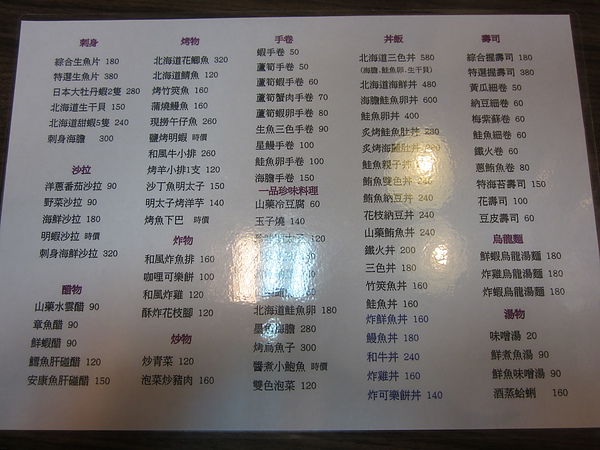 刺身
綜合生魚片 180
特選生魚片 380
日本大牡丹蝦2隻 280
北海道生干貝 150
北海道甜蝦5隻 240
刺身海膽 300
沙拉
洋蔥番茄沙拉 90
野菜沙拉 90
海鮮沙拉 180
明蝦沙拉 時價
刺身海鮮沙拉 320
醋物
山藥水雲醋 90
章魚醋 90
鮮蝦醋 90
鱈魚肝磁醋 120
安康魚肝磁醋 150
烤物
北海道花鯽魚 320
北海道鯖魚 120
烤竹筴魚 160
蒲燒鰻魚 160
現撈午仔魚 260
鹽烤明蝦 時價
和風牛小排 260
烤羊小排1支 120
沙丁魚明太子 150
明太子烤洋芋 140
烤魚下巴 時價
炸物
和風炸魚排 160
咖哩可樂餅 100
和風炸雞 120
酥炸花枝腳 120
炒物
炒青菜 120
泡菜炒豬肉 160
手卷
蝦手卷 50
蘆筍手卷 50
蘆筍蝦手卷 60
蘆筍蟹肉手卷 70
蘆筍蝦卵手卷 80
生魚三色手卷 90
星鰻手卷 100
鮭魚卵手卷 100
海膽手卷 150
一品珍味料理
山藥冷豆腐 60
玉子燒 140
北海道鮭魚卵 180
海膽 280
烤烏魚子 300
醬煮小鮑魚 時價
雙色泡菜 120
丼飯
北海道三色丼 580
(海膽,鮭魚卵,生干貝)
北海道海鮮丼 480
海膽鮭魚卵丼 600
鮭魚卵丼 400
炙烤鮭魚肚丼 240
炙烤海鱺肚丼 240
鮭魚親子丼
鮪魚雙色丼 240
鮪魚納豆丼 240
花枝納豆丼 240
山藥鮪魚丼 240
鐵火丼 200
三色丼 180
竹筴魚丼 160
鮭魚丼 160
炸鮮魚丼 160
鰻魚丼 180
和牛丼 240
炸雞丼 160
炸可樂餅丼 140
壽司
綜合握壽司 180
特選握壽司 380
黃瓜細卷 50
納豆細卷 60
梅紫蘇卷 60
鮭魚細卷 60
鐵火卷 60
蔥鮪魚卷 80
特海苔壽司 150
花壽司 100
豆皮壽司 60
烏龍麵
鮮蝦烏龍湯麵 180
炸雞烏龍湯麵 180
炸蝦烏龍湯麵 180
湯物
味噌湯 20
鮮煮魚湯 90
鮮魚味噌湯 90
酒蒸蛤蜊 160